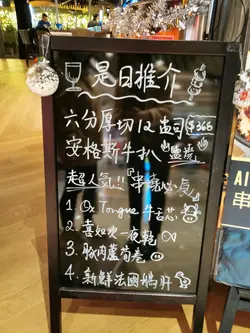 是日推介
六分厚切12盎司 $366
安格斯牛扒 鹽燒
超人氣!! 串燒必食
1. Ox Tongue 牛舌芯
2. 喜知次一夜乾
3. 豚肉蘆荀卷
4. 新鮮法國鵝肝
AI
串